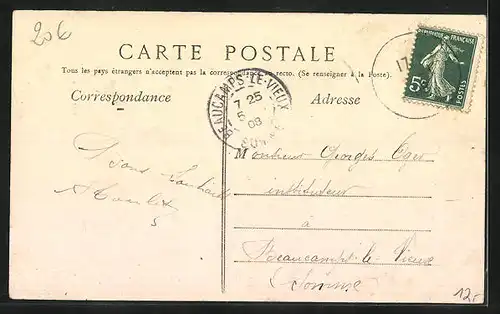 206
CARTE POSTALE
Tous les pays étrangers n'acceptent pas la correspondance au recto. (Se renseigner à la Poste).
Correspondance
Adresse
RÉPUBLIQUE FRANÇAISE
5c
POSTES
17
BEAUCAMPS-LE-VIEUX
7 25
5
08
Monsieur Georges Oger
instituteur
à
Beaucamps-le-Vieux
Somme
12.-